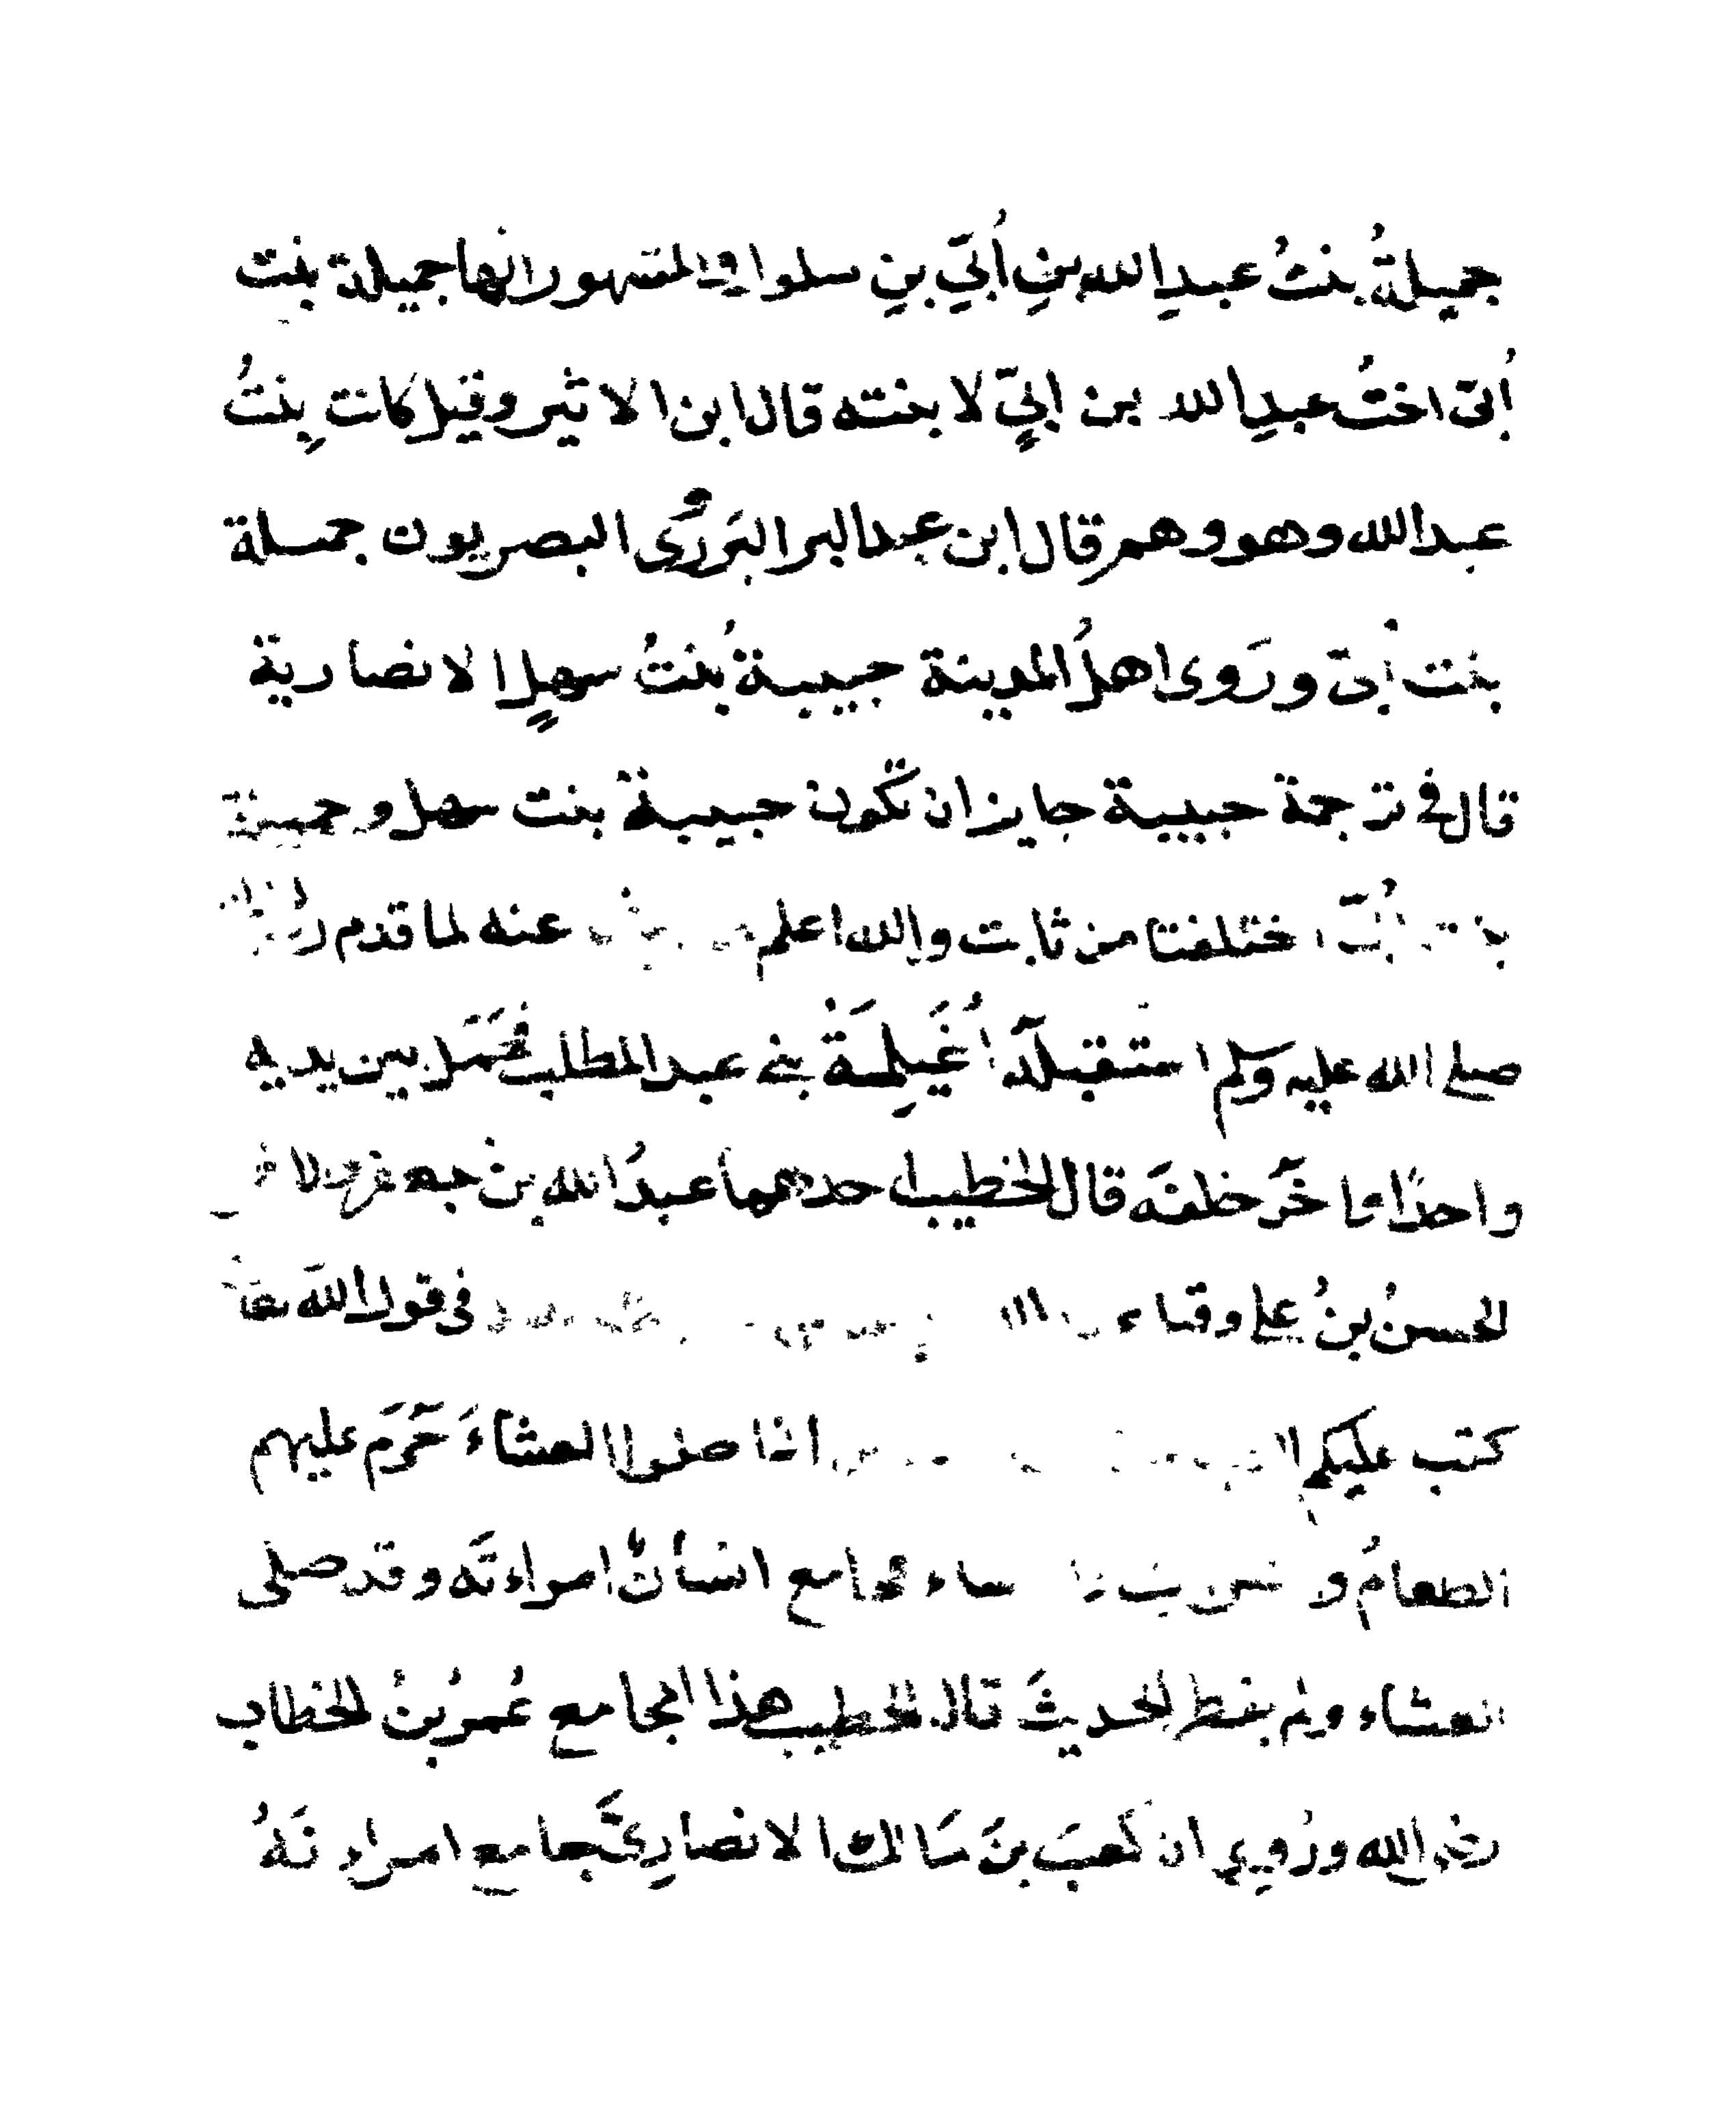 جميلةُ بنتُ عبدِ الله بنِ أُبَيِّ بنِ سلول والمشهور انها جميلة بنت
أُبىّ اختُ عبدِ الله بن ابيٍّ لا بنته قال ابن الاثير وقيل كانت بِنتُ
عبد الله وهو وهم قال ابن عبد البر روى البصريون جميلة
بنت أبىّ ورَوى اهلُ المدينة حبيبةُ بُنتُ سهلٍ الانصارية
قال فى ترجمة حبيبة جايز ان تكون حبيبة بنت سهل وجميلة
بنت أُبىّ اختلفتا من ثابت والله اعلم عنه لما قدم
صلى الله عليه وسلم استقبله أُغَيلِمَةُ بنى عبد المطلب فحَمَل بين يديه
واحدًا واخَر خلفَه قال الخطيب احدهما عبدُ الله بن جعفر والاخر
الحسنُ بنُ على وقيل فى قول الله تعالى
كتب عليكم اذا صلوا العشاءَ حَرُمَ عليهم
الطعامُ و النساء فجامع انسانٌ امراءته وقد صلى
العشاء ولم يفطر الحديثَ قال الخطيب هذا المجامع عُمرُ بنُ الخطاب
رضى الله ورُوِي ان كعبَ بنَ مَالك الانصارِىَّ جامع امراءتَهُ